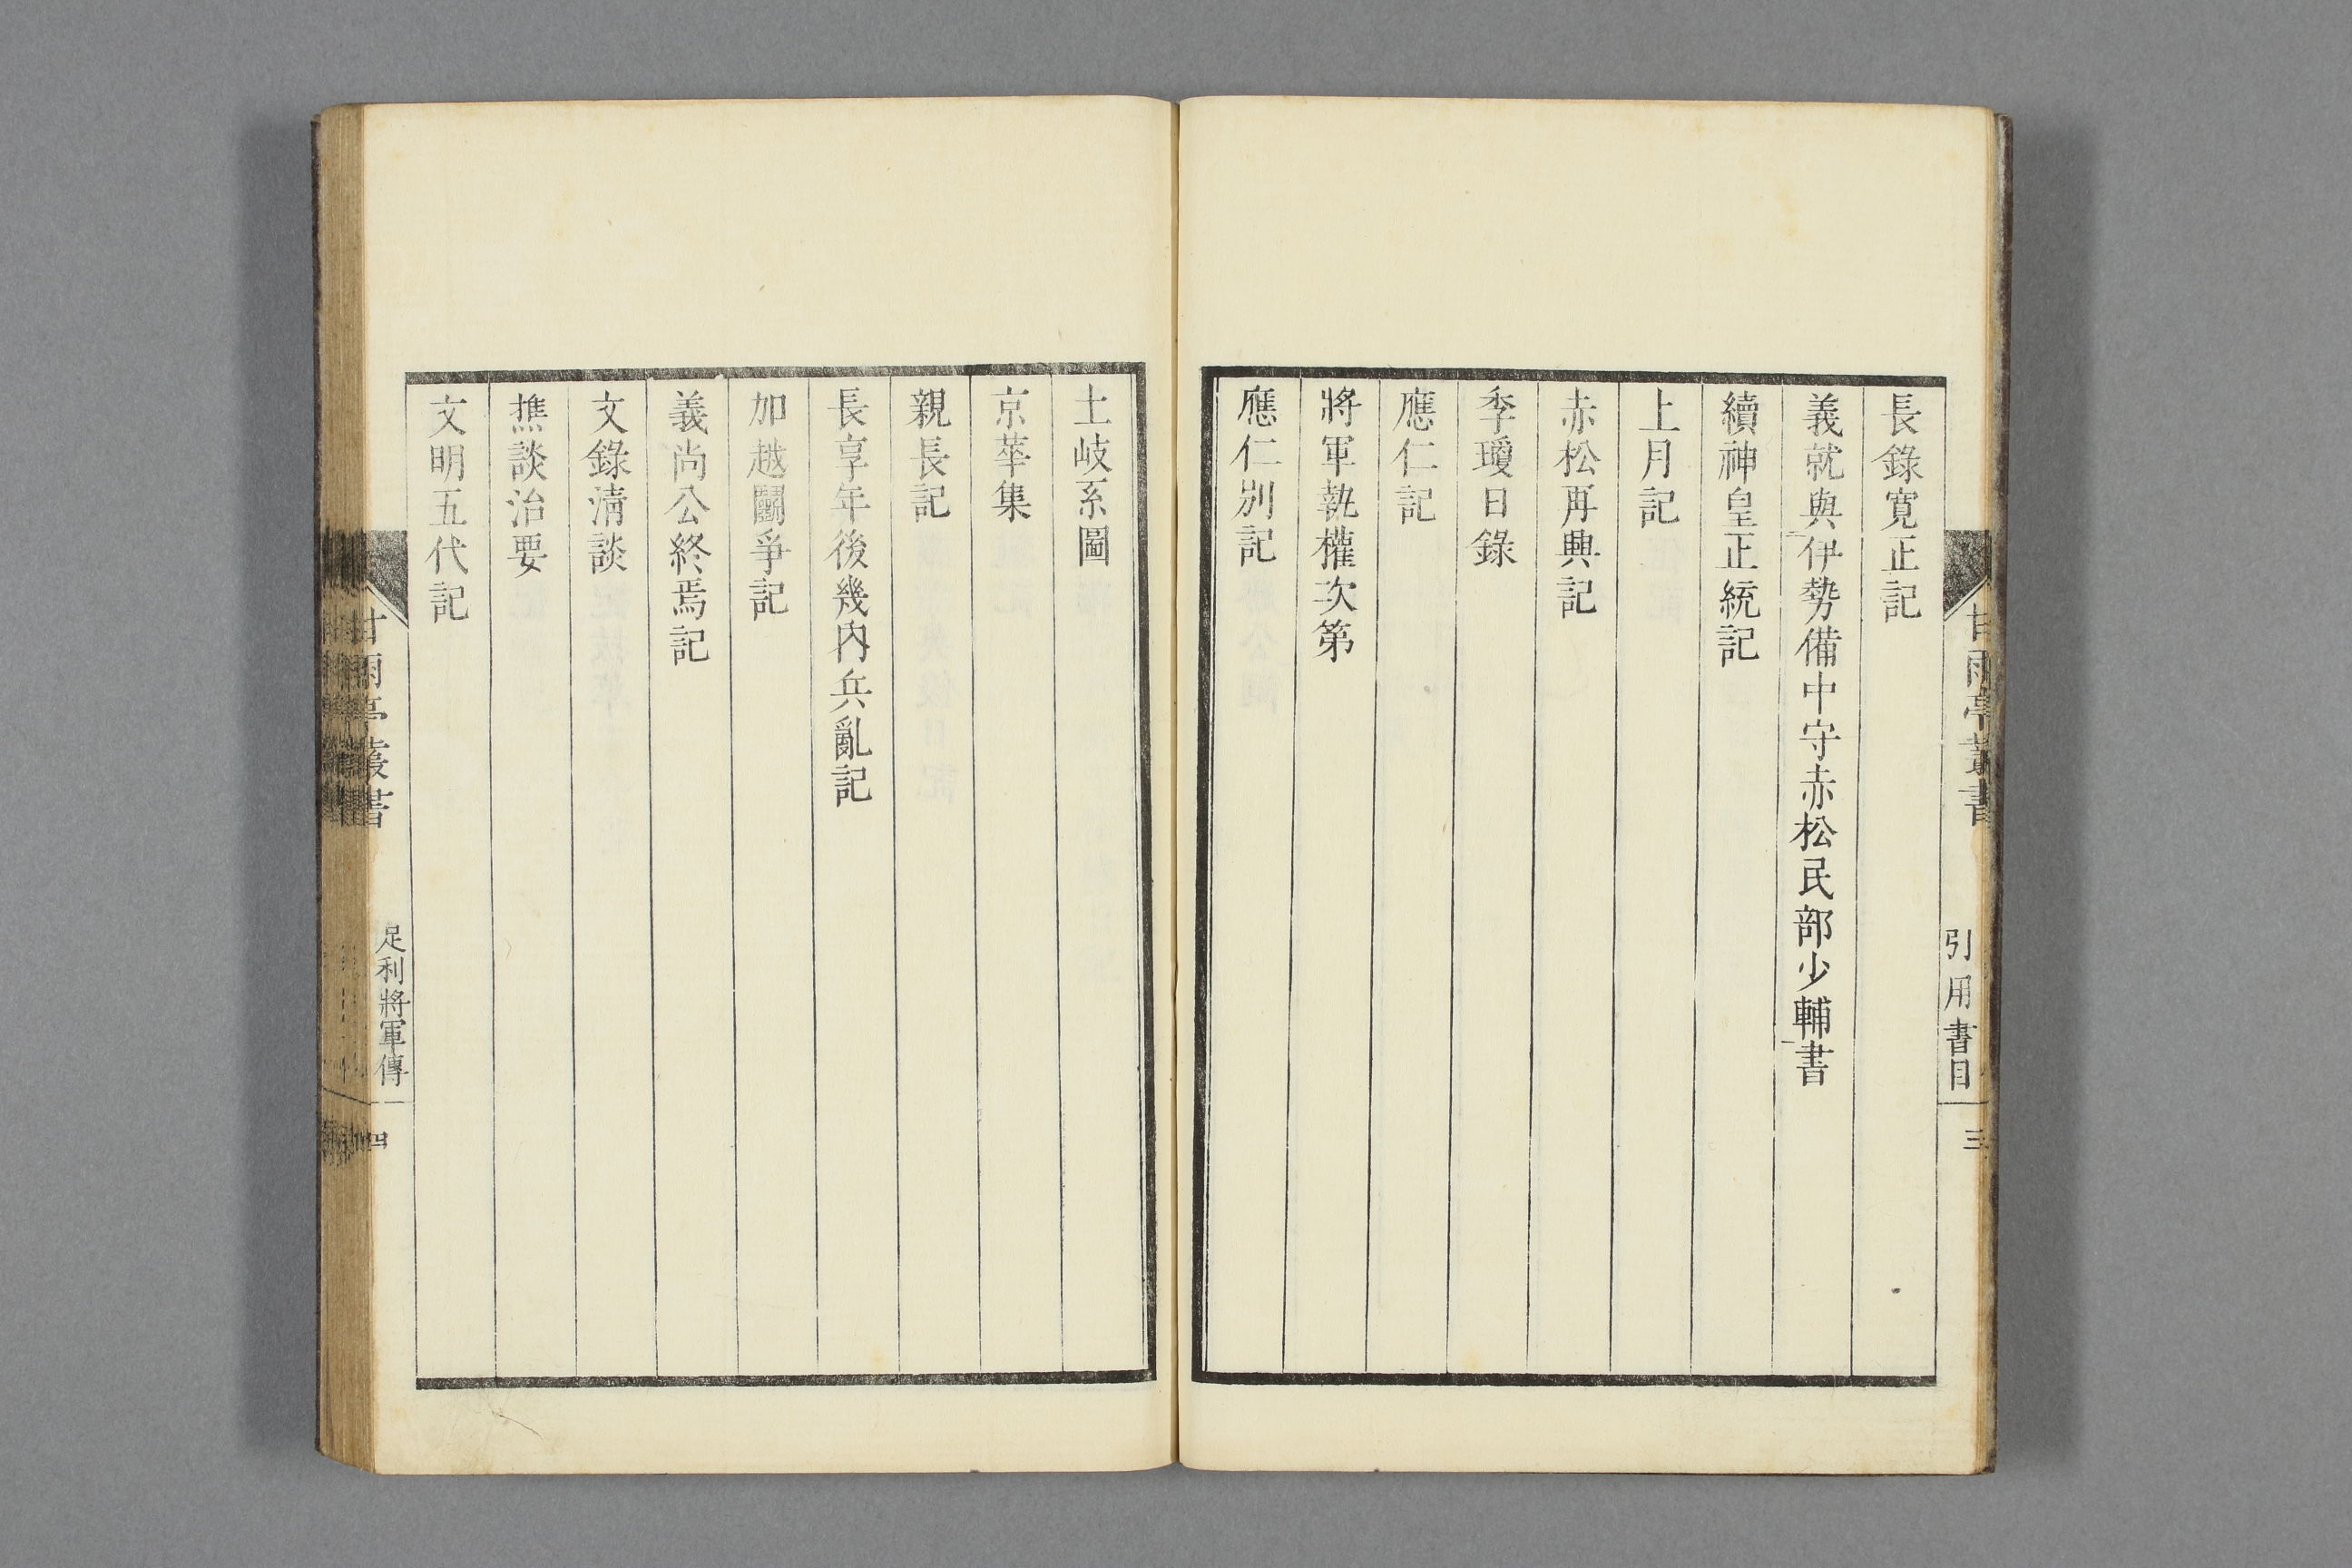 長錄寬正記
義就與伊勢備中守赤松民部少輔書
續神皇正統記
上月記
赤松再興記
季瓊日錄
應仁記
將軍執權次第
應仁別記
甘雨亭叢書
引用書目
三
土岐系圖
京華集
親長記
長享年後幾內兵亂記
加越鬭爭記
義尚公終焉記
文錄清談
樵談治要
文明五代記
甘雨亭叢書
足利將軍傳
四